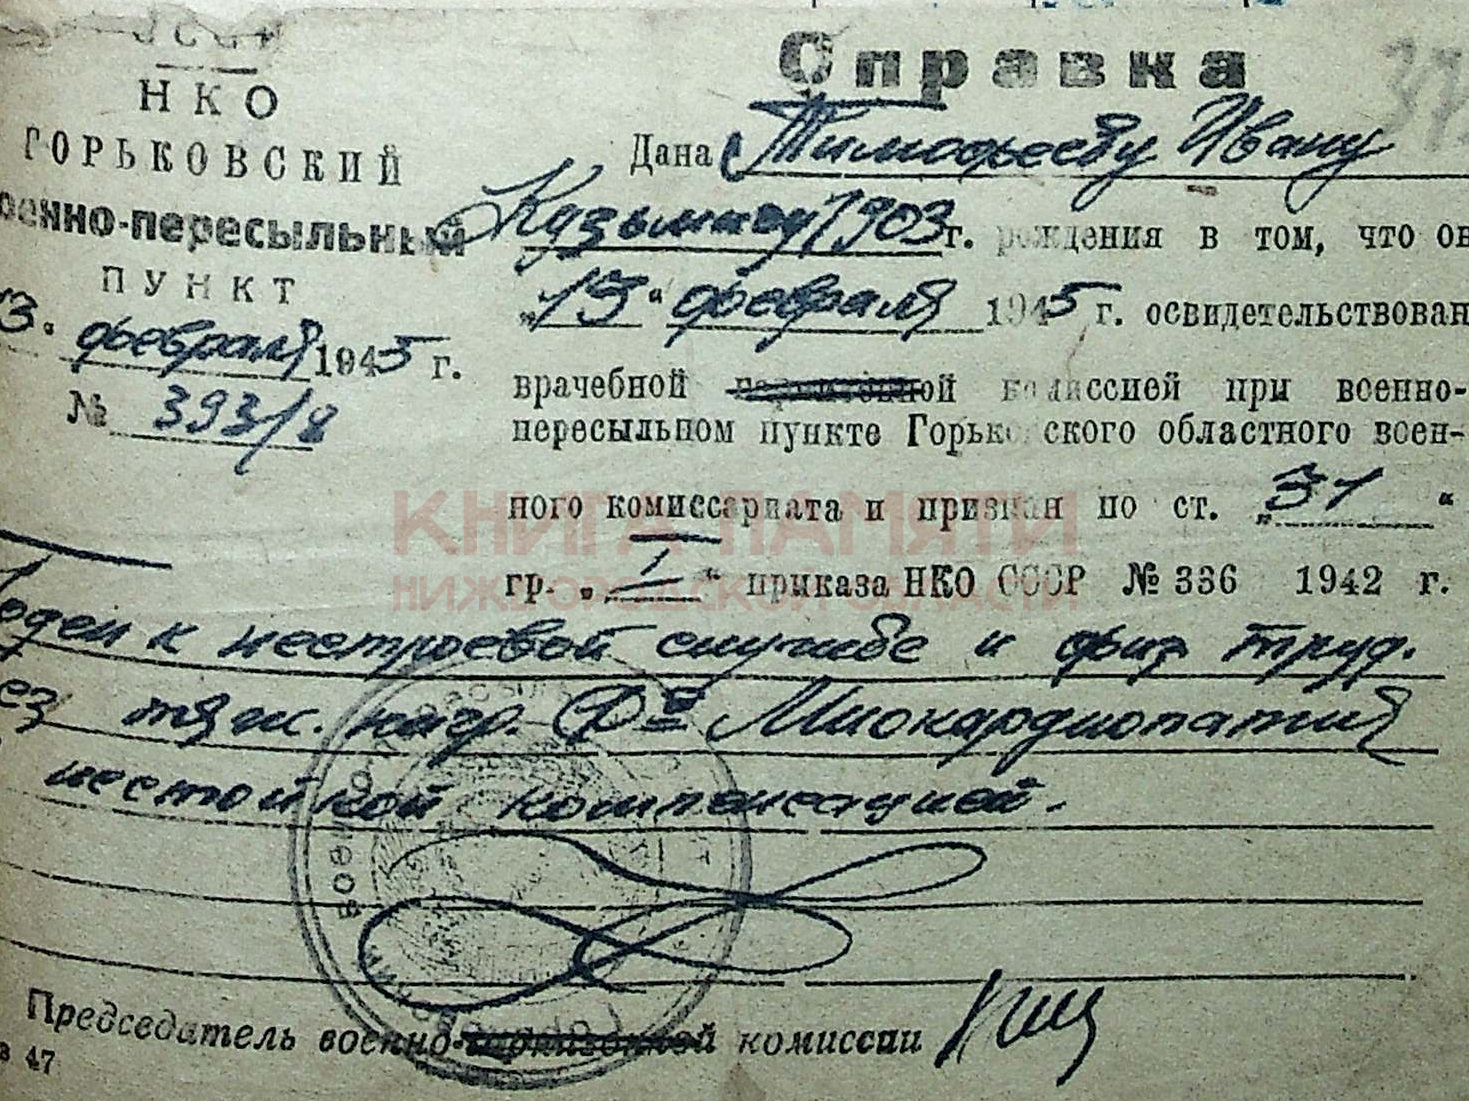 СССР
НКО
ГОРЬКОВСКИЙ
оенно-пересыльный
ПУНКТ
13" февраля 1945 г.
№ 393/8
Справка
Дана Тимофееву Ивану
Кузьмичу 1903 г. рождения в том, что он
„13" февраля 1945 г. освидетельствован
врачебной комиссией при военно-
пересыльном пункте Горьковского областного воен-
ного комиссариата и признан по ст. „31"
гр. „I" приказа НКО СССР № 336 1942 г.
Годен к нестроевой службе и физ труд.
без тяж. нагр. Дз Миокардиопатия
нестойкой компенсацией.
Председатель военно- комиссии
в 47
КНИГА ПАМЯТИ
НИЖЕГОРОДСКОЙ ОБЛАСТИ